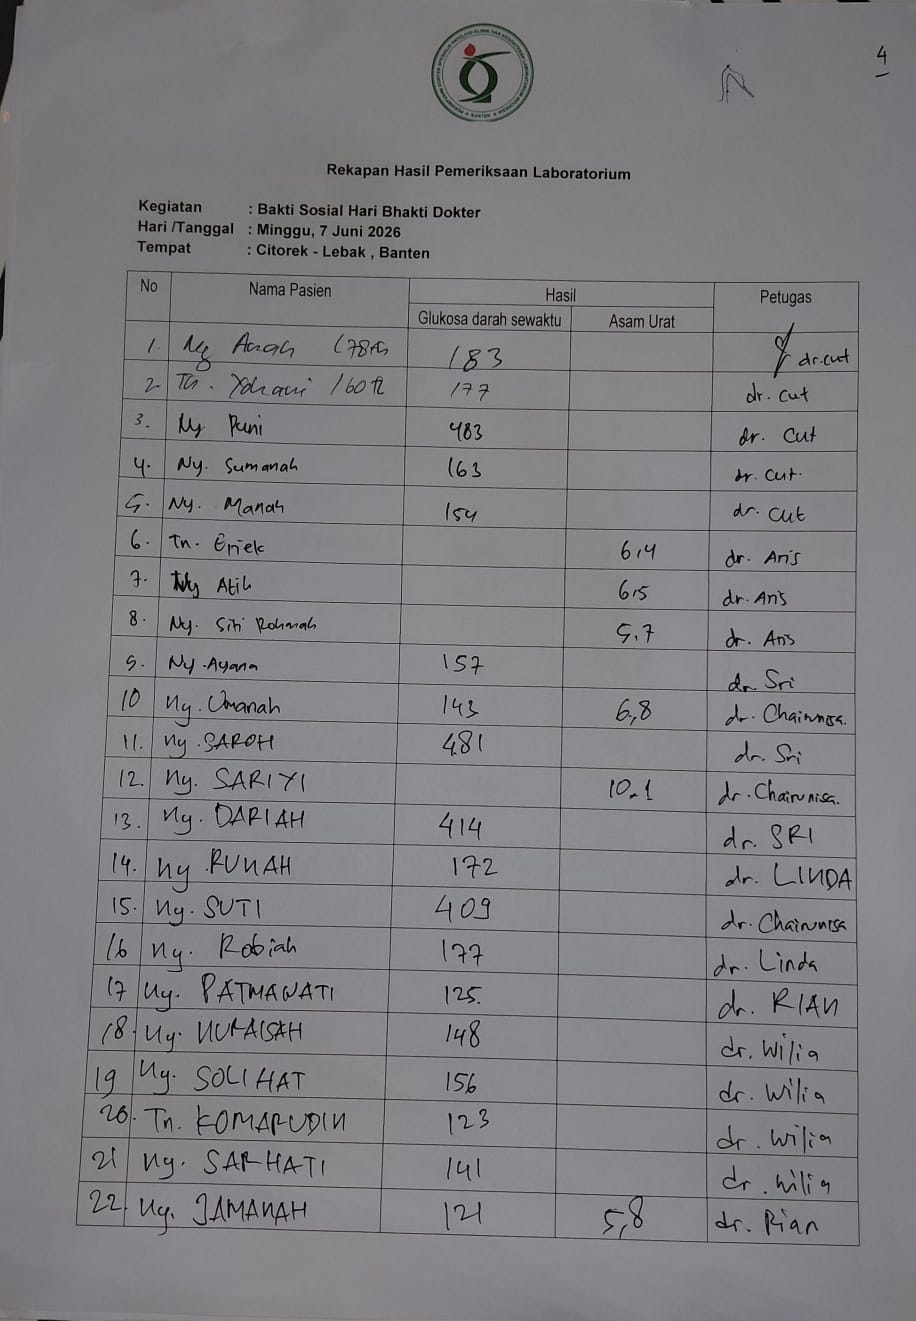 4
Rekapan Hasil Pemeriksaan Laboratorium
Kegiatan : Bakti Sosial Hari Bhakti Dokter
Hari /Tanggal : Minggu, 7 Juni 2026
Tempat : Citorek - Lebak , Banten
No Nama Pasien Hasil Petugas
Glukosa darah sewaktu Asam Urat
1. Ny (78th 183 dr. cut
2 Tn. 177 dr. cut
3. Ny Puni 483 dr. Cut
4. Ny. Sumanah 163 dr. cut.
5. Ny. Manah 154 dr. cut
6. Tn. 6,4 dr. Aris
7. Ny Atih 6,5 dr. Aris
8. Ny. Siti Rohmah 5.7 dr. Aris
9. Ny. Ayana 157 dr Sri
10 Ny. Umanah 143 6,8 dr. Chairunnisa.
11. Ny. SAROH 481 dr. Sri
12. Ny. SARIYI 10.1 dr. Chairunisa.
13. Ny. DARIAH 414 dr. SRI
14. Ny. RUNAH 172 dr. LINDA
15. Ny. SUTI 409 dr. Chairunnisa
16 Ny. Robiah 177 dr. Linda
17 Ny. PATMAWATI 125. dr. RIAN
18. Ny. NURAISAH 148 dr. Wilia
19 Ny. SOLIHAT 156 dr. Wilia
20. Tn. KOMARUDIN 123 dr. Wilia
21 Ny. SARHATI 141 dr. Wilia
22 Ny. JAMANAH 121 5,8 dr. Rian